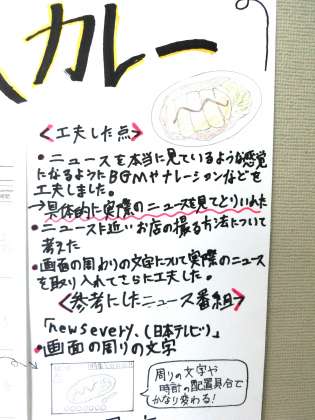 カレー
<工夫した点>
•ニュースを本当に見ているような感覚
になるようにBGMやナレーションなどを
工夫しました。
→具体的に実際のニュースを見てとりいれた
•ニュースに近いお店の撮る方法について
考えた
•画面の周わりの文字について実際のニュース
を取り入れてさらに工夫した。
<参考にしたニュース番組>
「news every.(日本テレビ)」
•画面の周りの文字
周りの文字や
時計の配置具合で
かなり変わる!